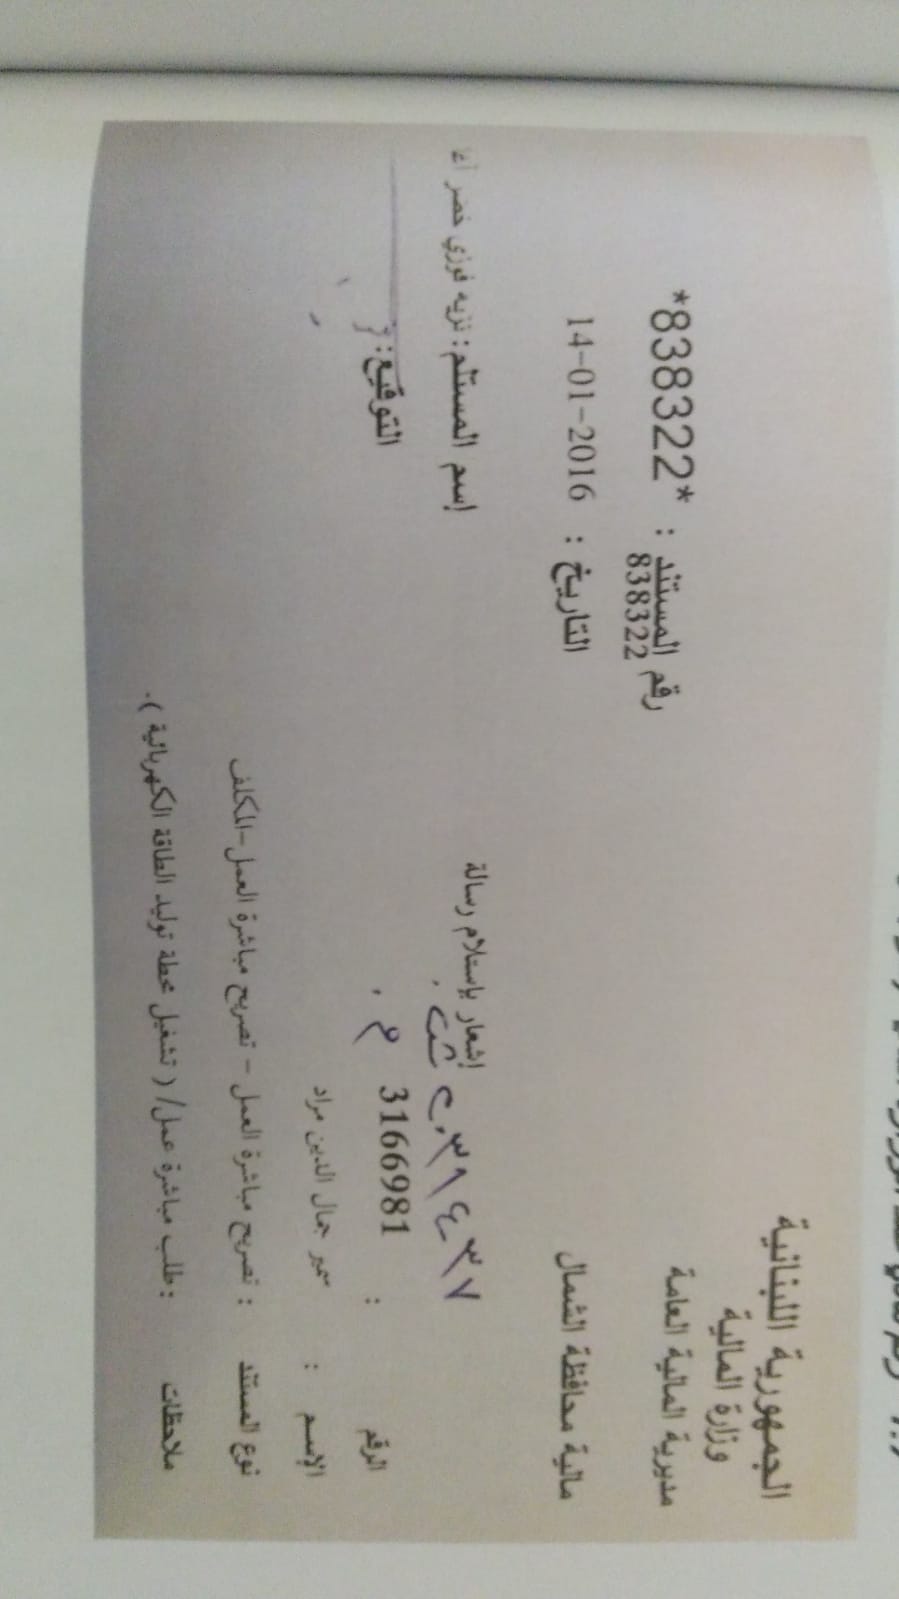 الجمهورية اللبنانية
وزارة المالية
مديرية المالية العامة
مالية محافظة الشمال
رقم المستند : *838322*
838322
التاريخ : 14-01-2016
إشعار بإستلام رسالة
إسم المستلم: نزيه فوزي خضر آغا
٣١٤٣٧
الرقم : 3166981
التوقيع:
الإسم : سمير جمال الدين مراد
نوع المستند : تصريح مباشرة العمل - تصريح مباشرة العمل-المكلف
ملاحظات : طلب مباشرة عمل/ ( تشغيل محطة توليد الطاقة الكهربائية ).